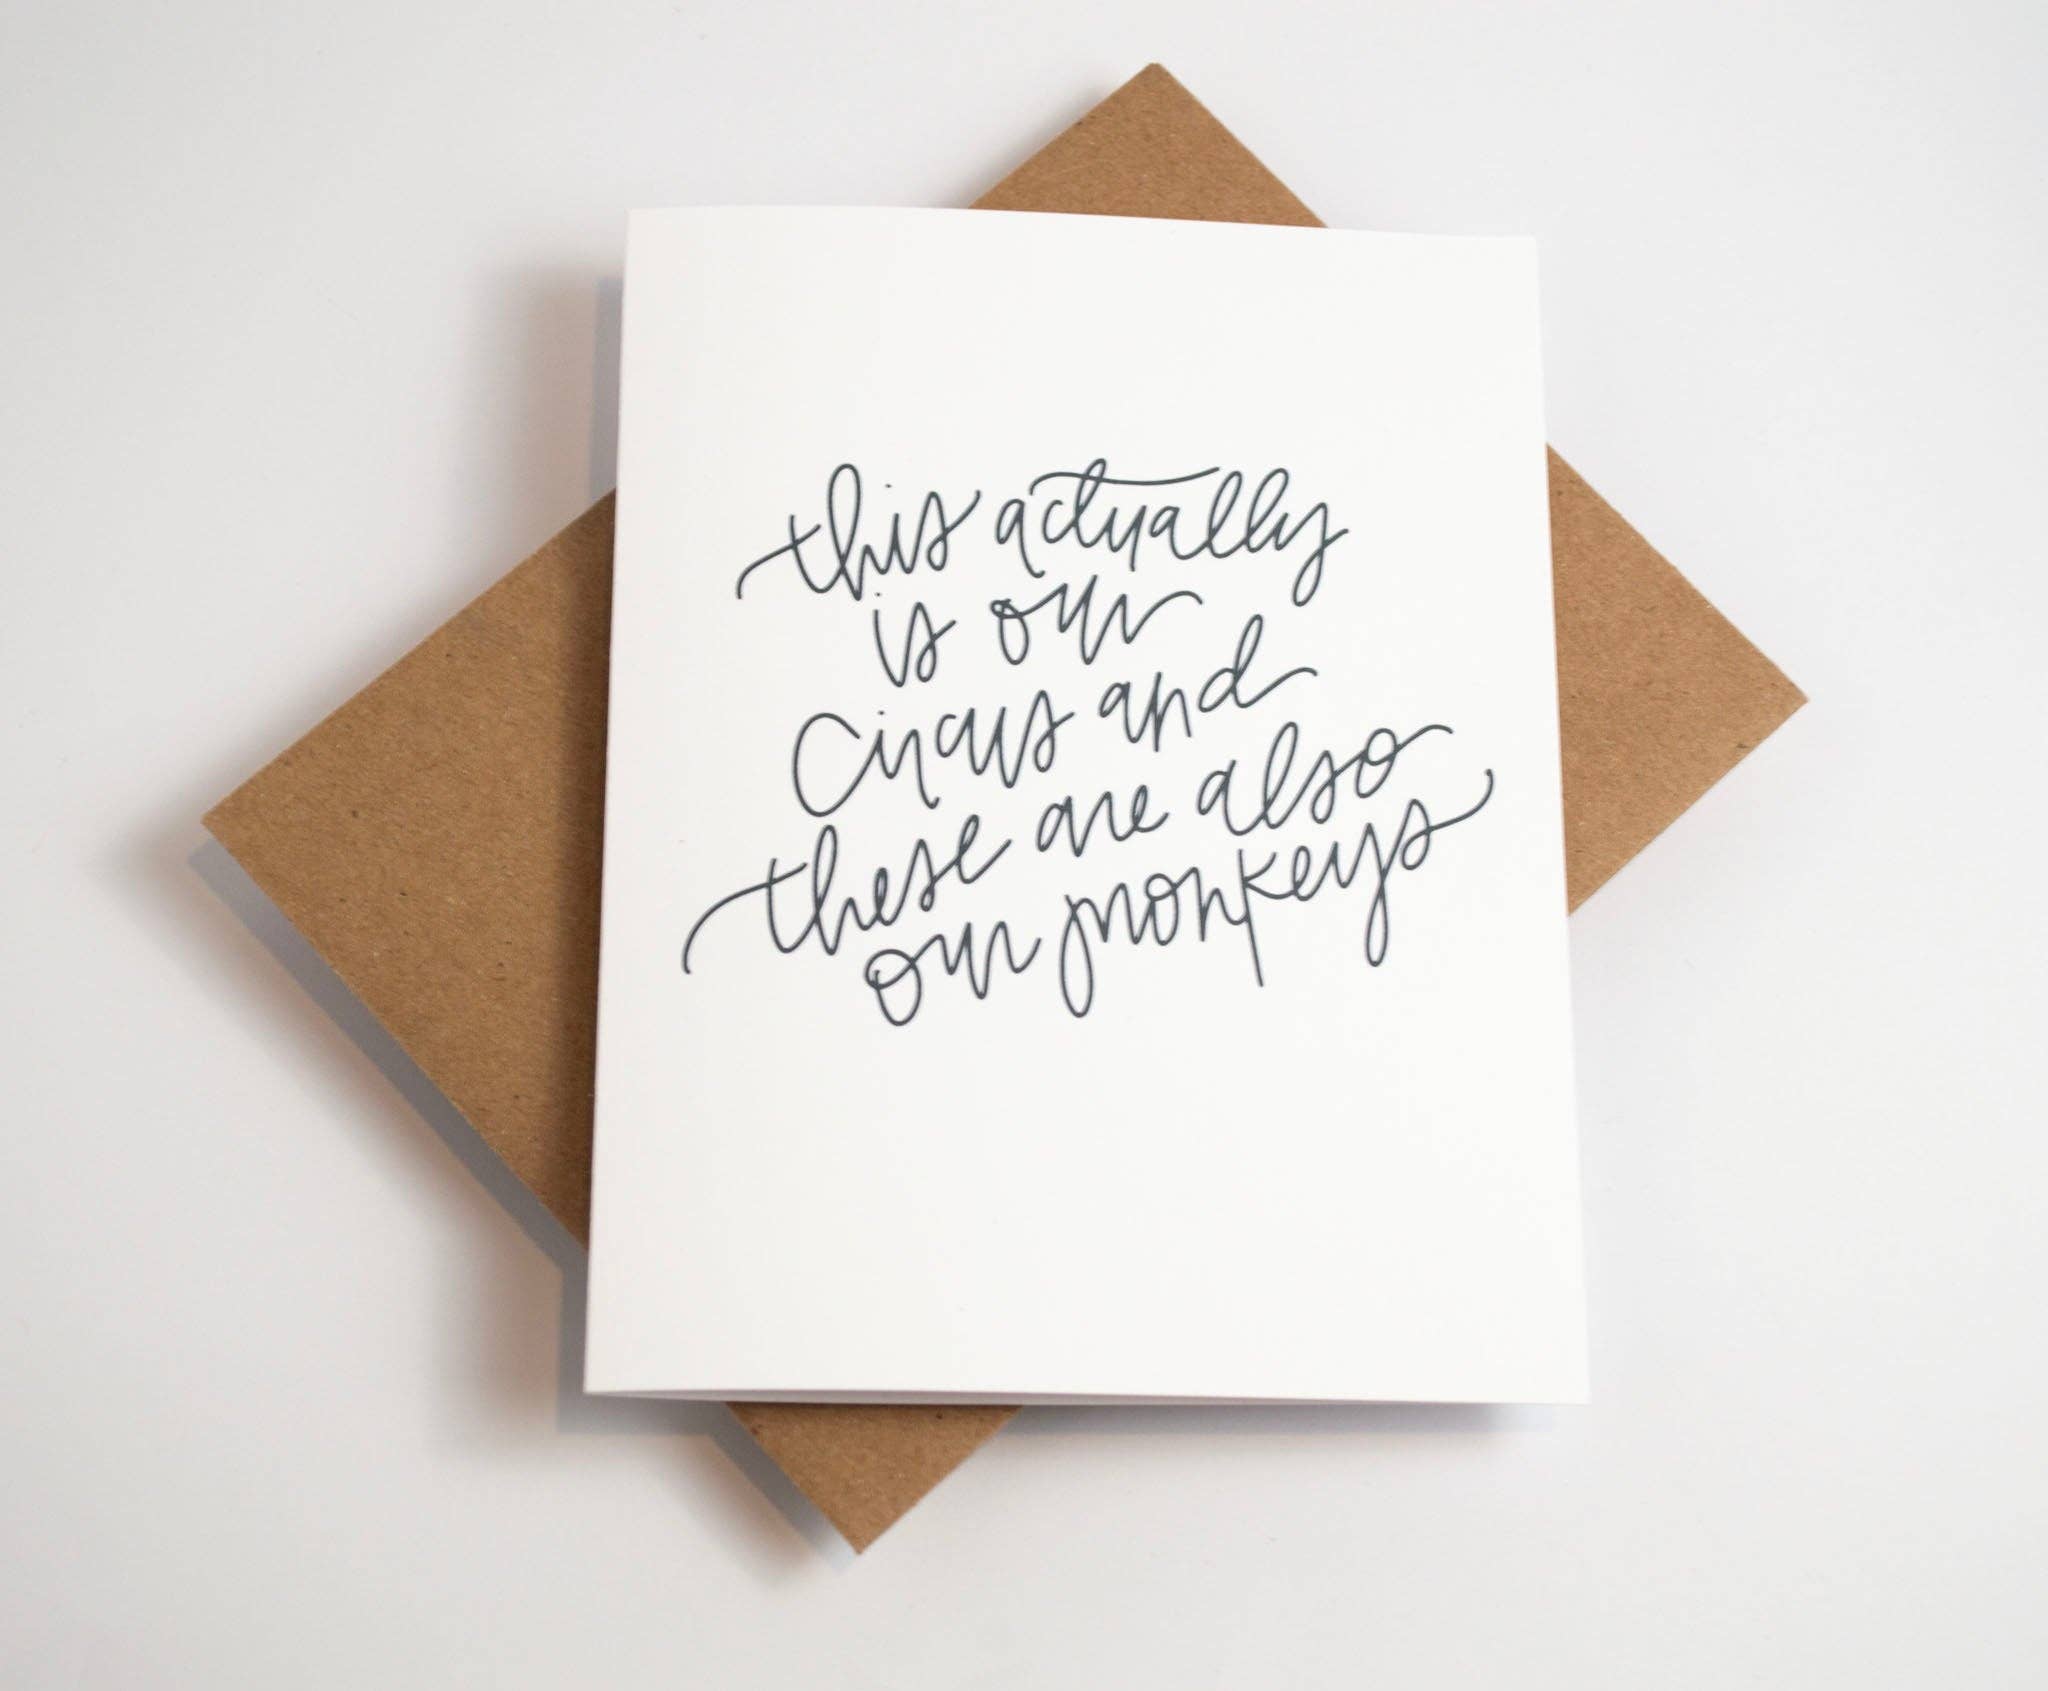 this actually
is our
circus and
these are also
our monkeys